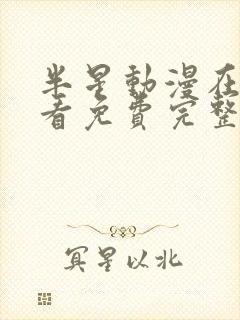 半星動漫在
看免費完整
冥星以北